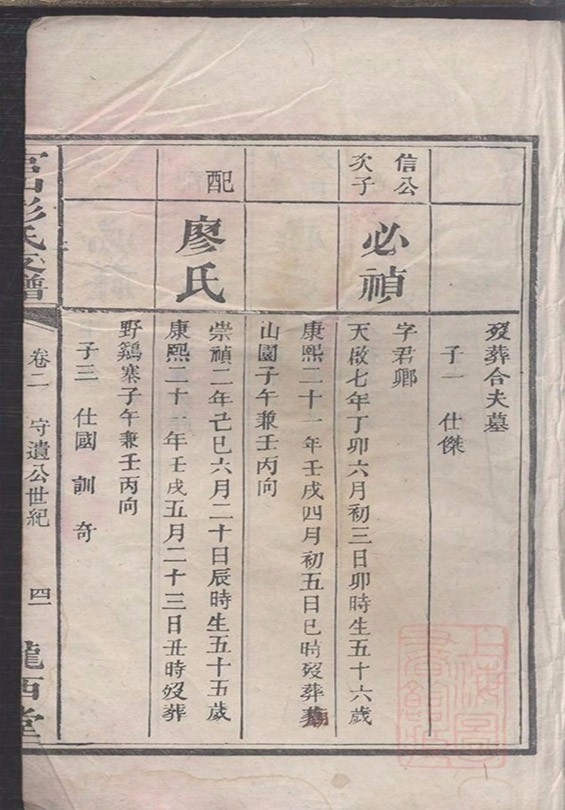 歿葬合夫墓
子一 仕傑
信公
次子
必禎
字君卿
天啟七年丁卯六月初三日卯時生五十六歲
康熙二十一年壬戌四月初五日巳時歿葬
山園子午兼壬丙向
配
廖氏
崇禎二年己巳六月二十日辰時生五十五歲
康熙二十一年壬戌五月二十三日丑時歿葬
野鷄寨子午兼壬丙向
子三 仕國 訓 奇
彭氏支譜
卷二
守遺公世紀
四一
隴西堂